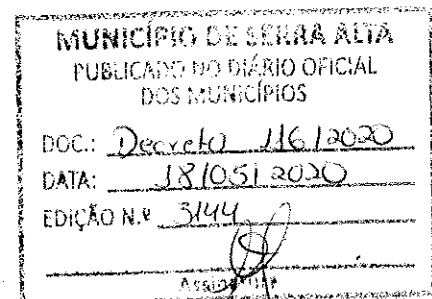 MUNICÍPIO DE SERRA ALTA
PUBLICADO NO DIÁRIO OFICIAL
DOS MUNICÍPIOS
DOC.: Decreto 116/2020
DATA: 18/05/2020
EDIÇÃO N.º 3144
Assinatura